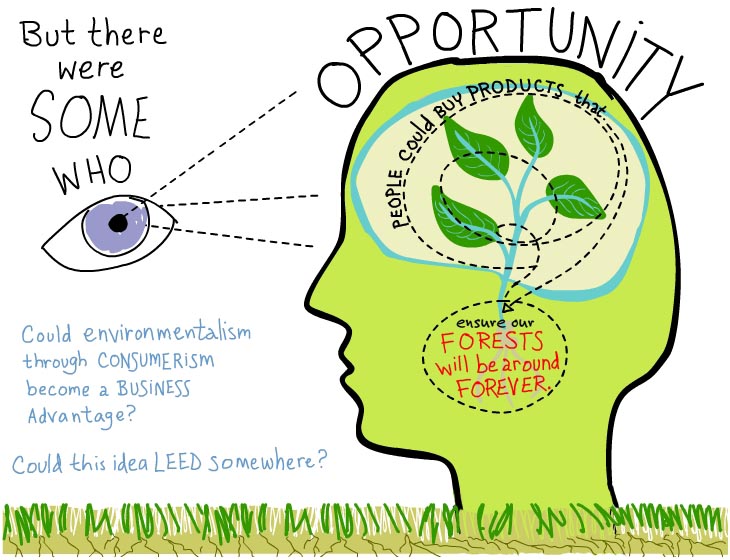 But there
were
SOME
WHO
OPPORTUNITY
PEOPLE could BUY PRODUCTS that
ensure our
FORESTS
will be around
FOREVER.
Could environmentalism
through CONSUMERiSM
become a BUSiNESS
Advantage?
Could this idea LEED somewhere?